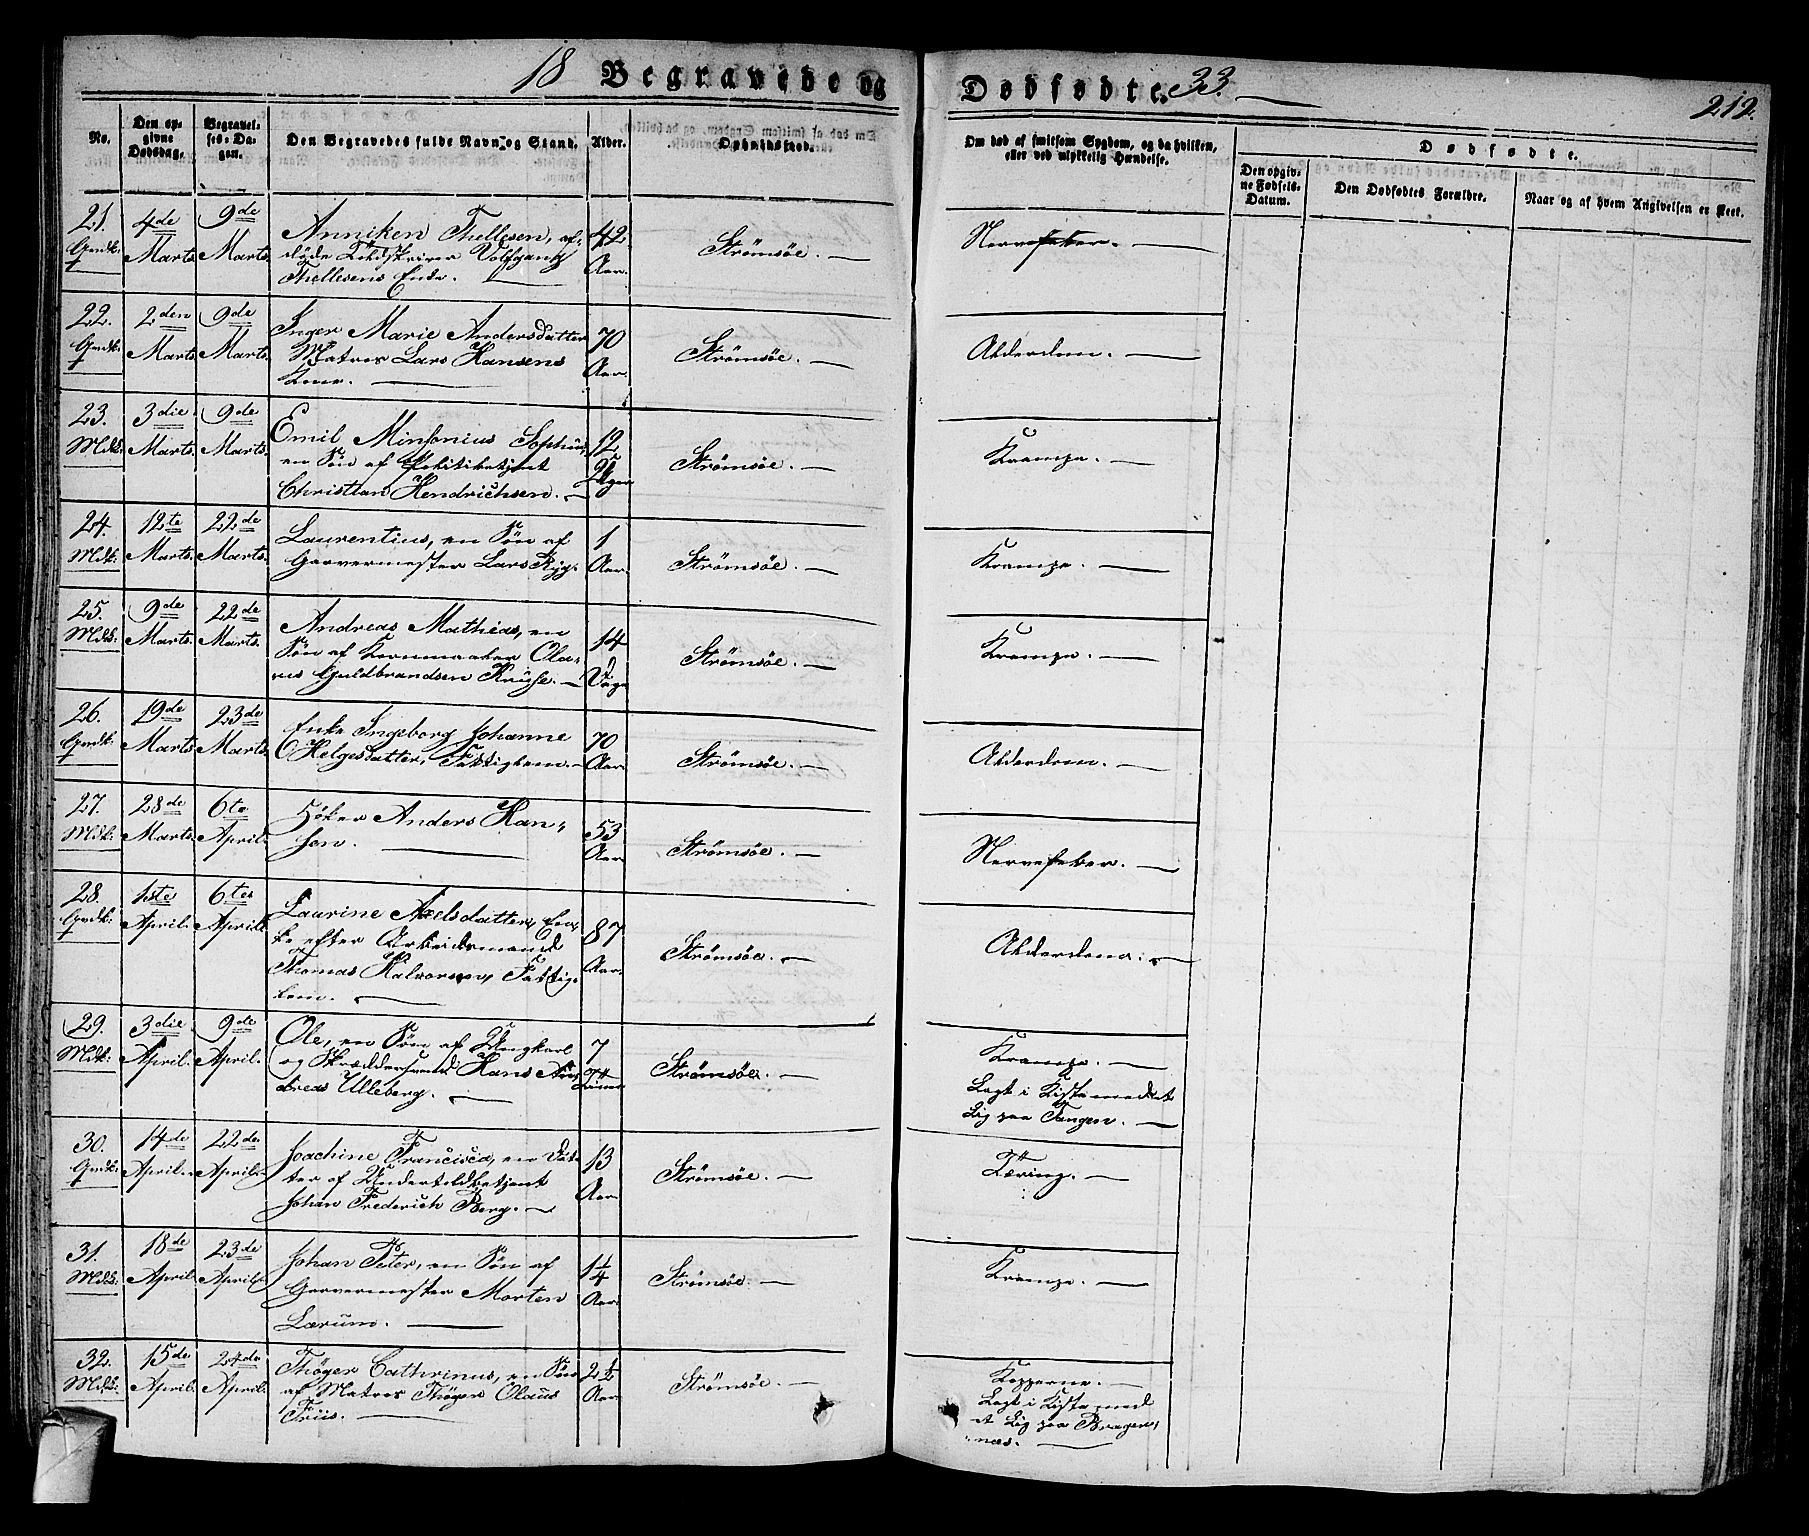 18 Begravede og Dødfødte. 33. 212.
No.
Den op-
givne
Dødsdag.
Begravel-
ses-Da-
gen.
Den Begravedes fulde Navn og Stand.
Alder.
Opholdssted.
Om død af smitsom Sygdom, og da hvilken,
eller ved ulykkelig Hændelse.
Dødfødte.
Den opgiv-
ne Fødsels-
Datum.
Den Dødfødtes Forældre.
Naar og af hvem Angivelsen er skeet.
21. 4de 9de Anniken Thellesen, af- 42
Qvdk: Marts. Marts. døde Volfgang Aar. Strømsøe. — Nervefeber. —
Thellesens Enke. —
22. 2den 9de Inger Marie Andersdatter 70
Qvdk: Marts. Marts. Matros Lars Hansens Aar. Strømsøe. — Alderdom. —
Kone. —
23. 3die 9de Emil Sophus, 12
Mdk: Marts. Marts. en Søn af Politibetjent Uger Strømsøe. — Krampe. —
Christian Hendrichsen. —
24. 12te 22de Laurentius, en Søn af 1
Mdk: Marts. Marts. Garvermester Lars Aar. Strømsøe. — Krampe. —
25. 9de 22de Andreas Mathias, en 14
Mdk: Marts. Marts. Søn af Ola- Strømsøe. — Krampe. —
us Guldbrandsen Kruse. — Dage
26. 19de 23de Enke Ingeborg Johanne 70
Qvdk: Marts. Marts. Helgesdatter, Fattiglem. — Aar. Strømsøe. — Alderdom. —
27. 28de 6te Høker Anders Han- 53
Mdk: Marts. April. sen. — Aar. Strømsøe. — Nervefeber. —
28. 1ste 6te Laurine Axelsdatter, En-
Qvdk: April. April. ke efter Arbeidsmand 87 Strømsøe. — Alderdom. —
Thomas Halvorsen, Fattig- Aar.
lem. —
29. 3die 9de Ole, en Søn af Ungkarl 7
Mdk: April. April. og Skræddersvend Hans An- Timer Strømsøe. — Krampe. —
dreas Ulleberg. —
Lagt i Kiste med et
Lig paa Tangen. —
30. 14de 22de Joachine Francisca, en Dat- 13
Qvdk: April. April. ter af Undertoldbetjent Aar. Strømsøe. — Tæring. —
Johan Frederich Berg. —
31. 18de 23de Johan Peter, en Søn af 1¼
Mdk: April. April. Garvermester Morten Aar. Strømsøe. — Krampe. —
Lærum. —
32. 15de 24de Thøger Cathrinus, en Søn 2½
Mdk: April. April. af Matros Thøger Olaus Aar. Strømsøe. — Kopperne. —
Friis. —
Lagt i Kiste med
et Lig paa Brager-
næs. —